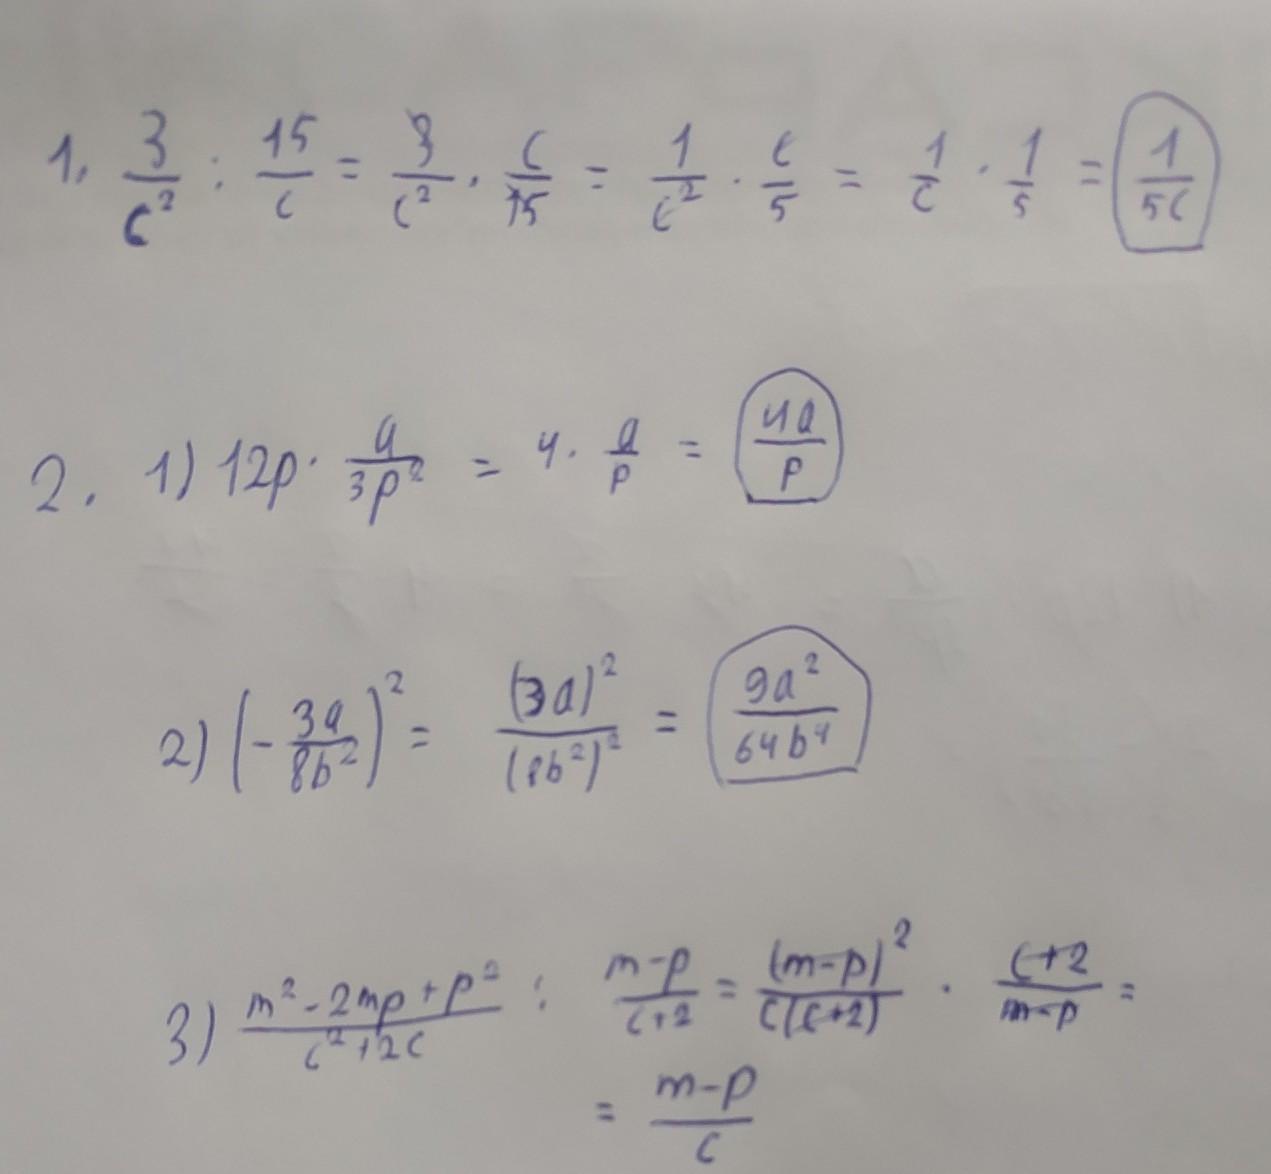 1. 3/c² : 15/c = 3/c² · c/15 = 1/c² · c/5 = 1/c · 1/5 = 1/5c
2. 1) 12p · a/3p² = 4 · a/p = 4a/p
2) (- 3a/8b²)² = (3a)²/(8b²)² = 9a²/64b⁴
3) m² - 2mp + p²/c² + 2c : m-p/c+2 = (m-p)²/c(c+2) · c+2/m-p =
= m-p/c